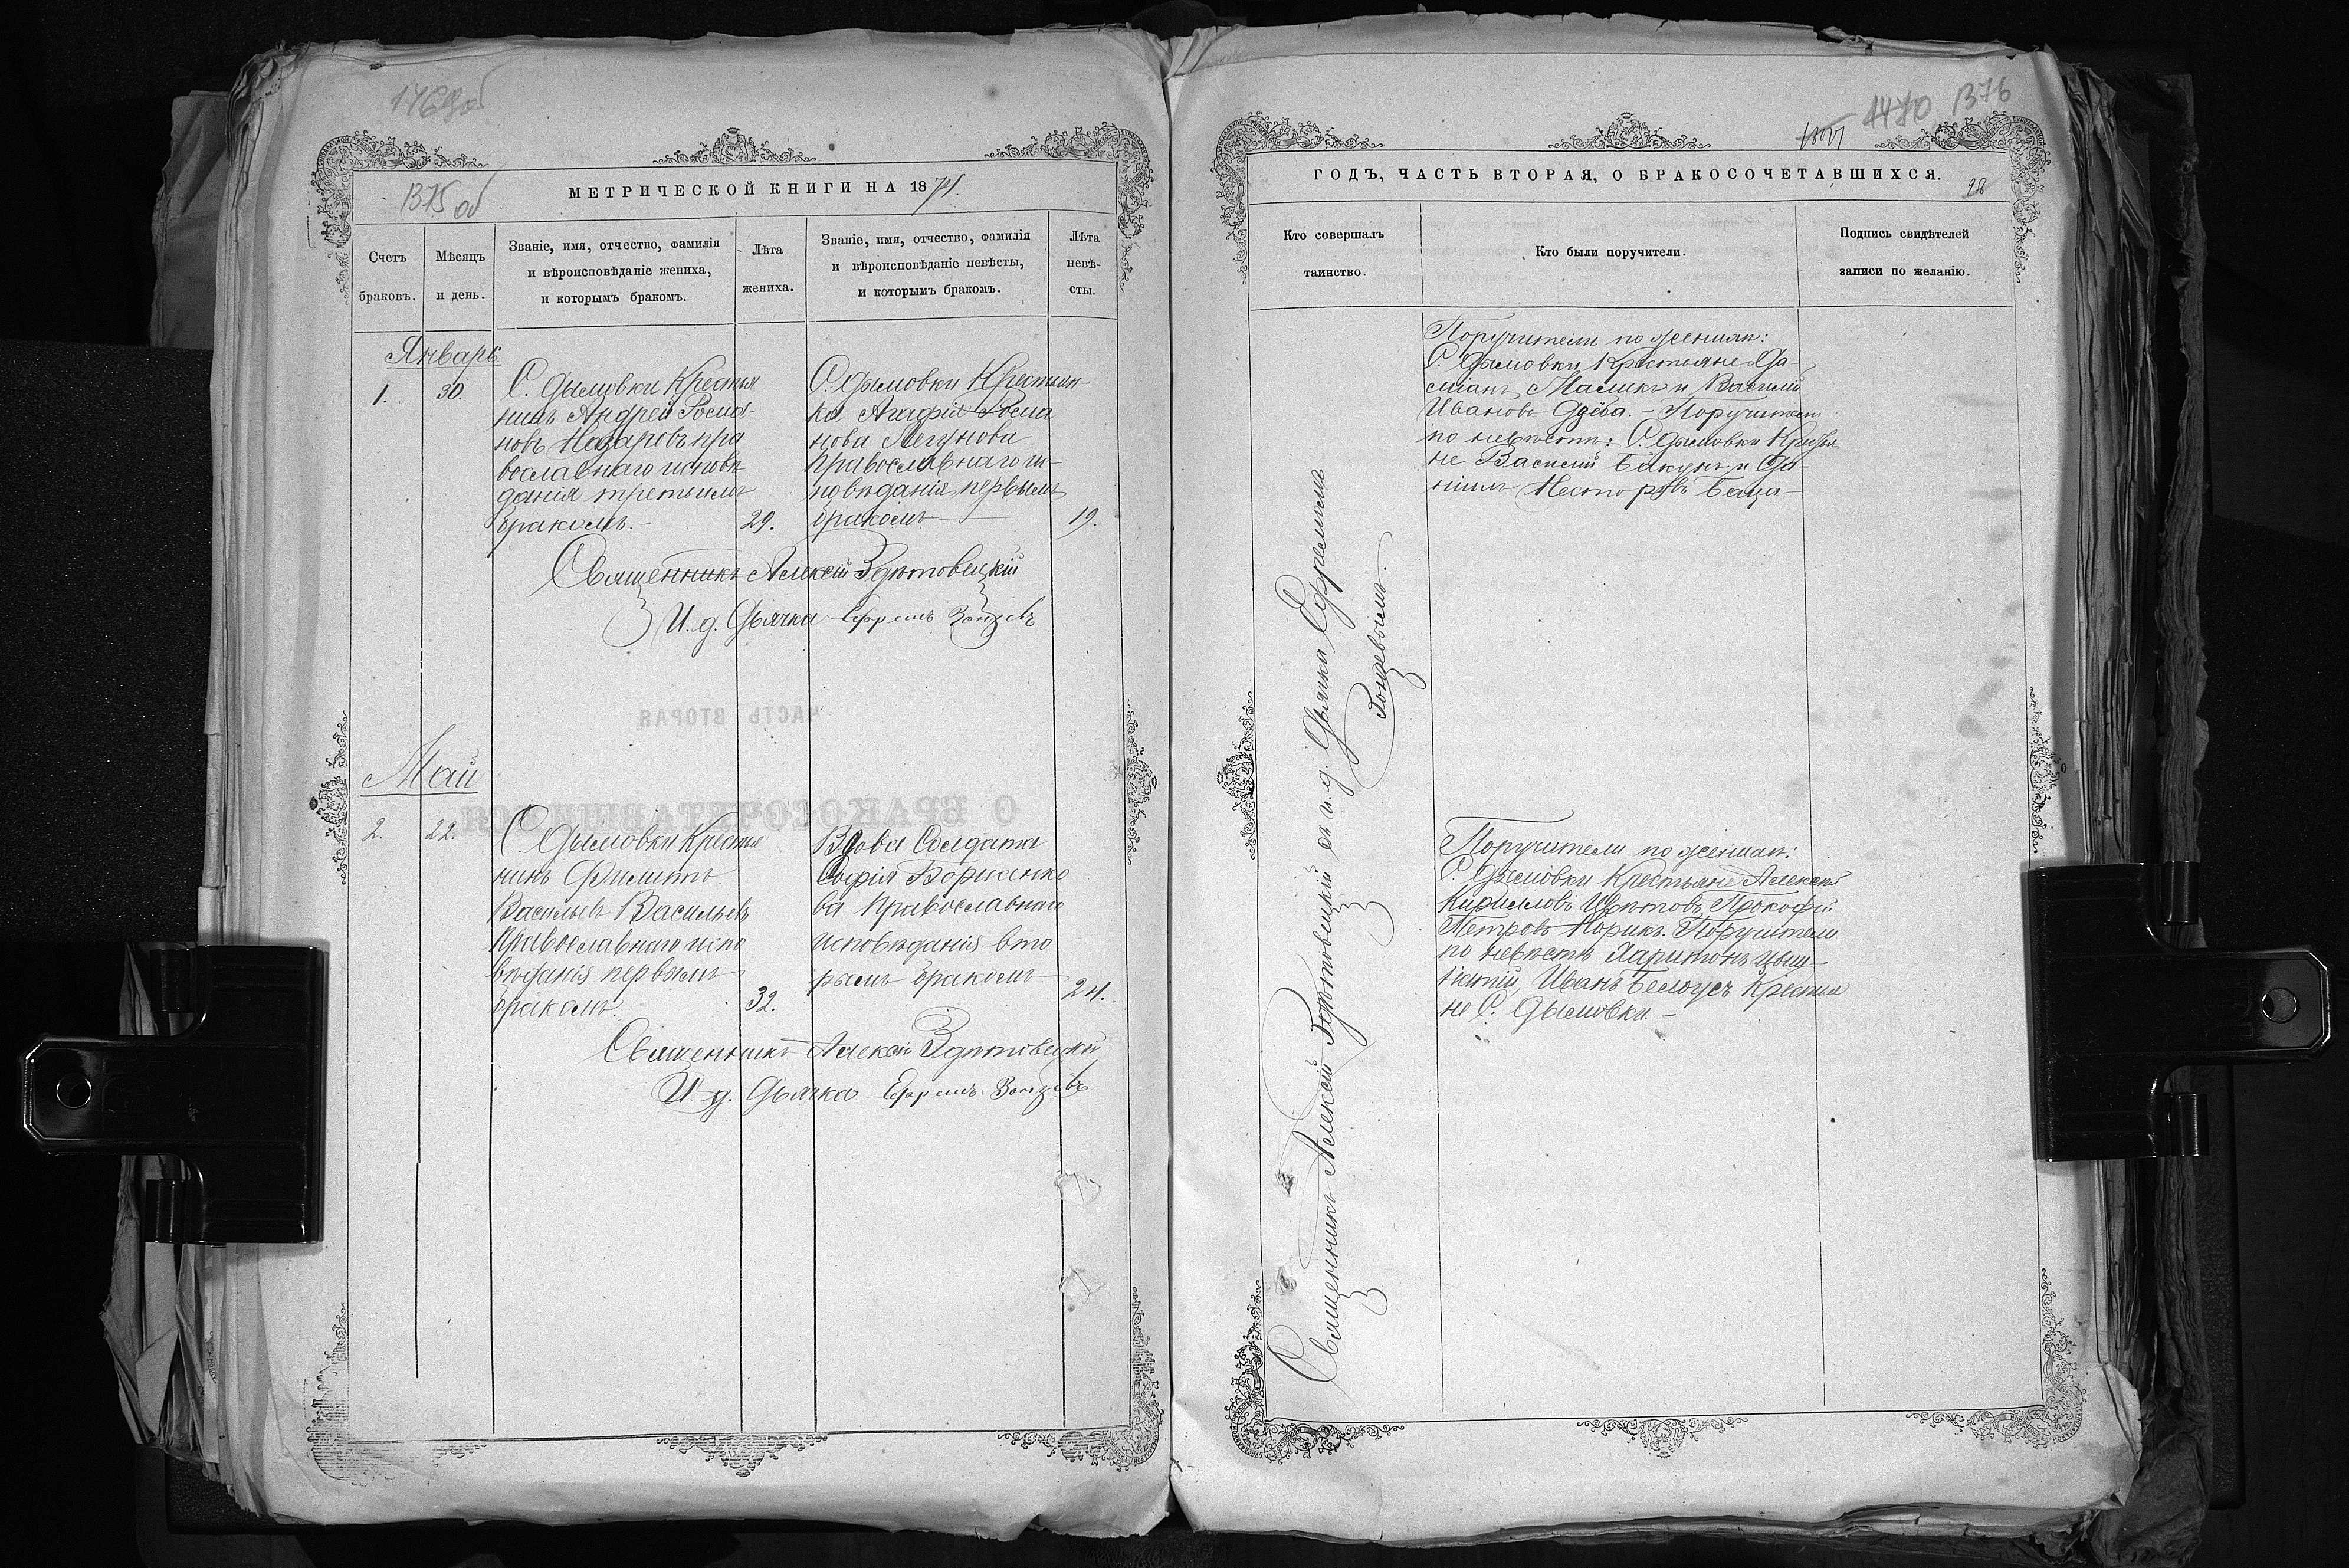 1469об
1375 об
МЕТРИЧЕСКОЙ КНИГИ НА 1871.
Счетъ
браковъ.
Мѣсяцъ
и день.
Званіе, имя, отчество, фамилія
и вѣроисповѣданіе жениха,
и которымъ бракомъ.
Лѣта
жениха.
Званіе, имя, отчество, фамилія
и вѣроисповѣданіе невѣсты,
и которымъ бракомъ.
Лѣта
невѣ-
сты.
Январь
1.
30.
С. Дымовки Крестья
нинъ Андрей Рома-
новъ Назаровъ пра
вославнаго исповѣ
данія третьимъ
бракомъ.-
29.
С. Дымовки Крестьян-
ка Агафія Рома
нова Легунова
Православнаго ис-
повѣданія, первымъ
бракомъ
19.
Священникъ Алексій Здѣтовецкій
И. д. Дьячка Ефремъ Зонзевъ
Май
2.
22.
С. Дымовки Крестья
нинъ Филиппъ
Васильевъ Васильевъ
Православнаго испо
вѣданія первымъ
бракомъ.
32.
Вдова Солдата
Софія Борисенко
ва Православнаго
исповѣданія вто
рымъ бракомъ
24.
Священникъ Алексій Здѣтовецкій
И. д. Дьячка Ефремъ Зонзевъ
1470 1376
ГОДЪ, ЧАСТЬ ВТОРАЯ, О БРАКОСОЧЕТАВШИХСЯ.
28
Кто совершалъ
таинство.
Кто были поручители.
Подпись свидѣтелей
записи по желанію.
Священникъ Алексій Здѣтовецкій съ и. д. Дьячка Ефремомъ
Зонзевымъ.
Поручители по женихѣ:
С. Дымовки Крестьяне Да-
міанъ Маликъ и Василій
Ивановъ Дзюба. - Поручители
по невѣстѣ: С. Дымовки Крестья
не Василій Бакунъ и Да-
ніилъ Несторовъ Баца-
Поручители по женихѣ:
С. Дымовки Крестьяне Алексѣй
Кирилловъ Цвѣтовъ, Прокофій
Петровъ Норикъ. Поручители
по невѣстѣ Харитонъ
Иванъ Белоусъ Крестья
не С. Дымовки. -